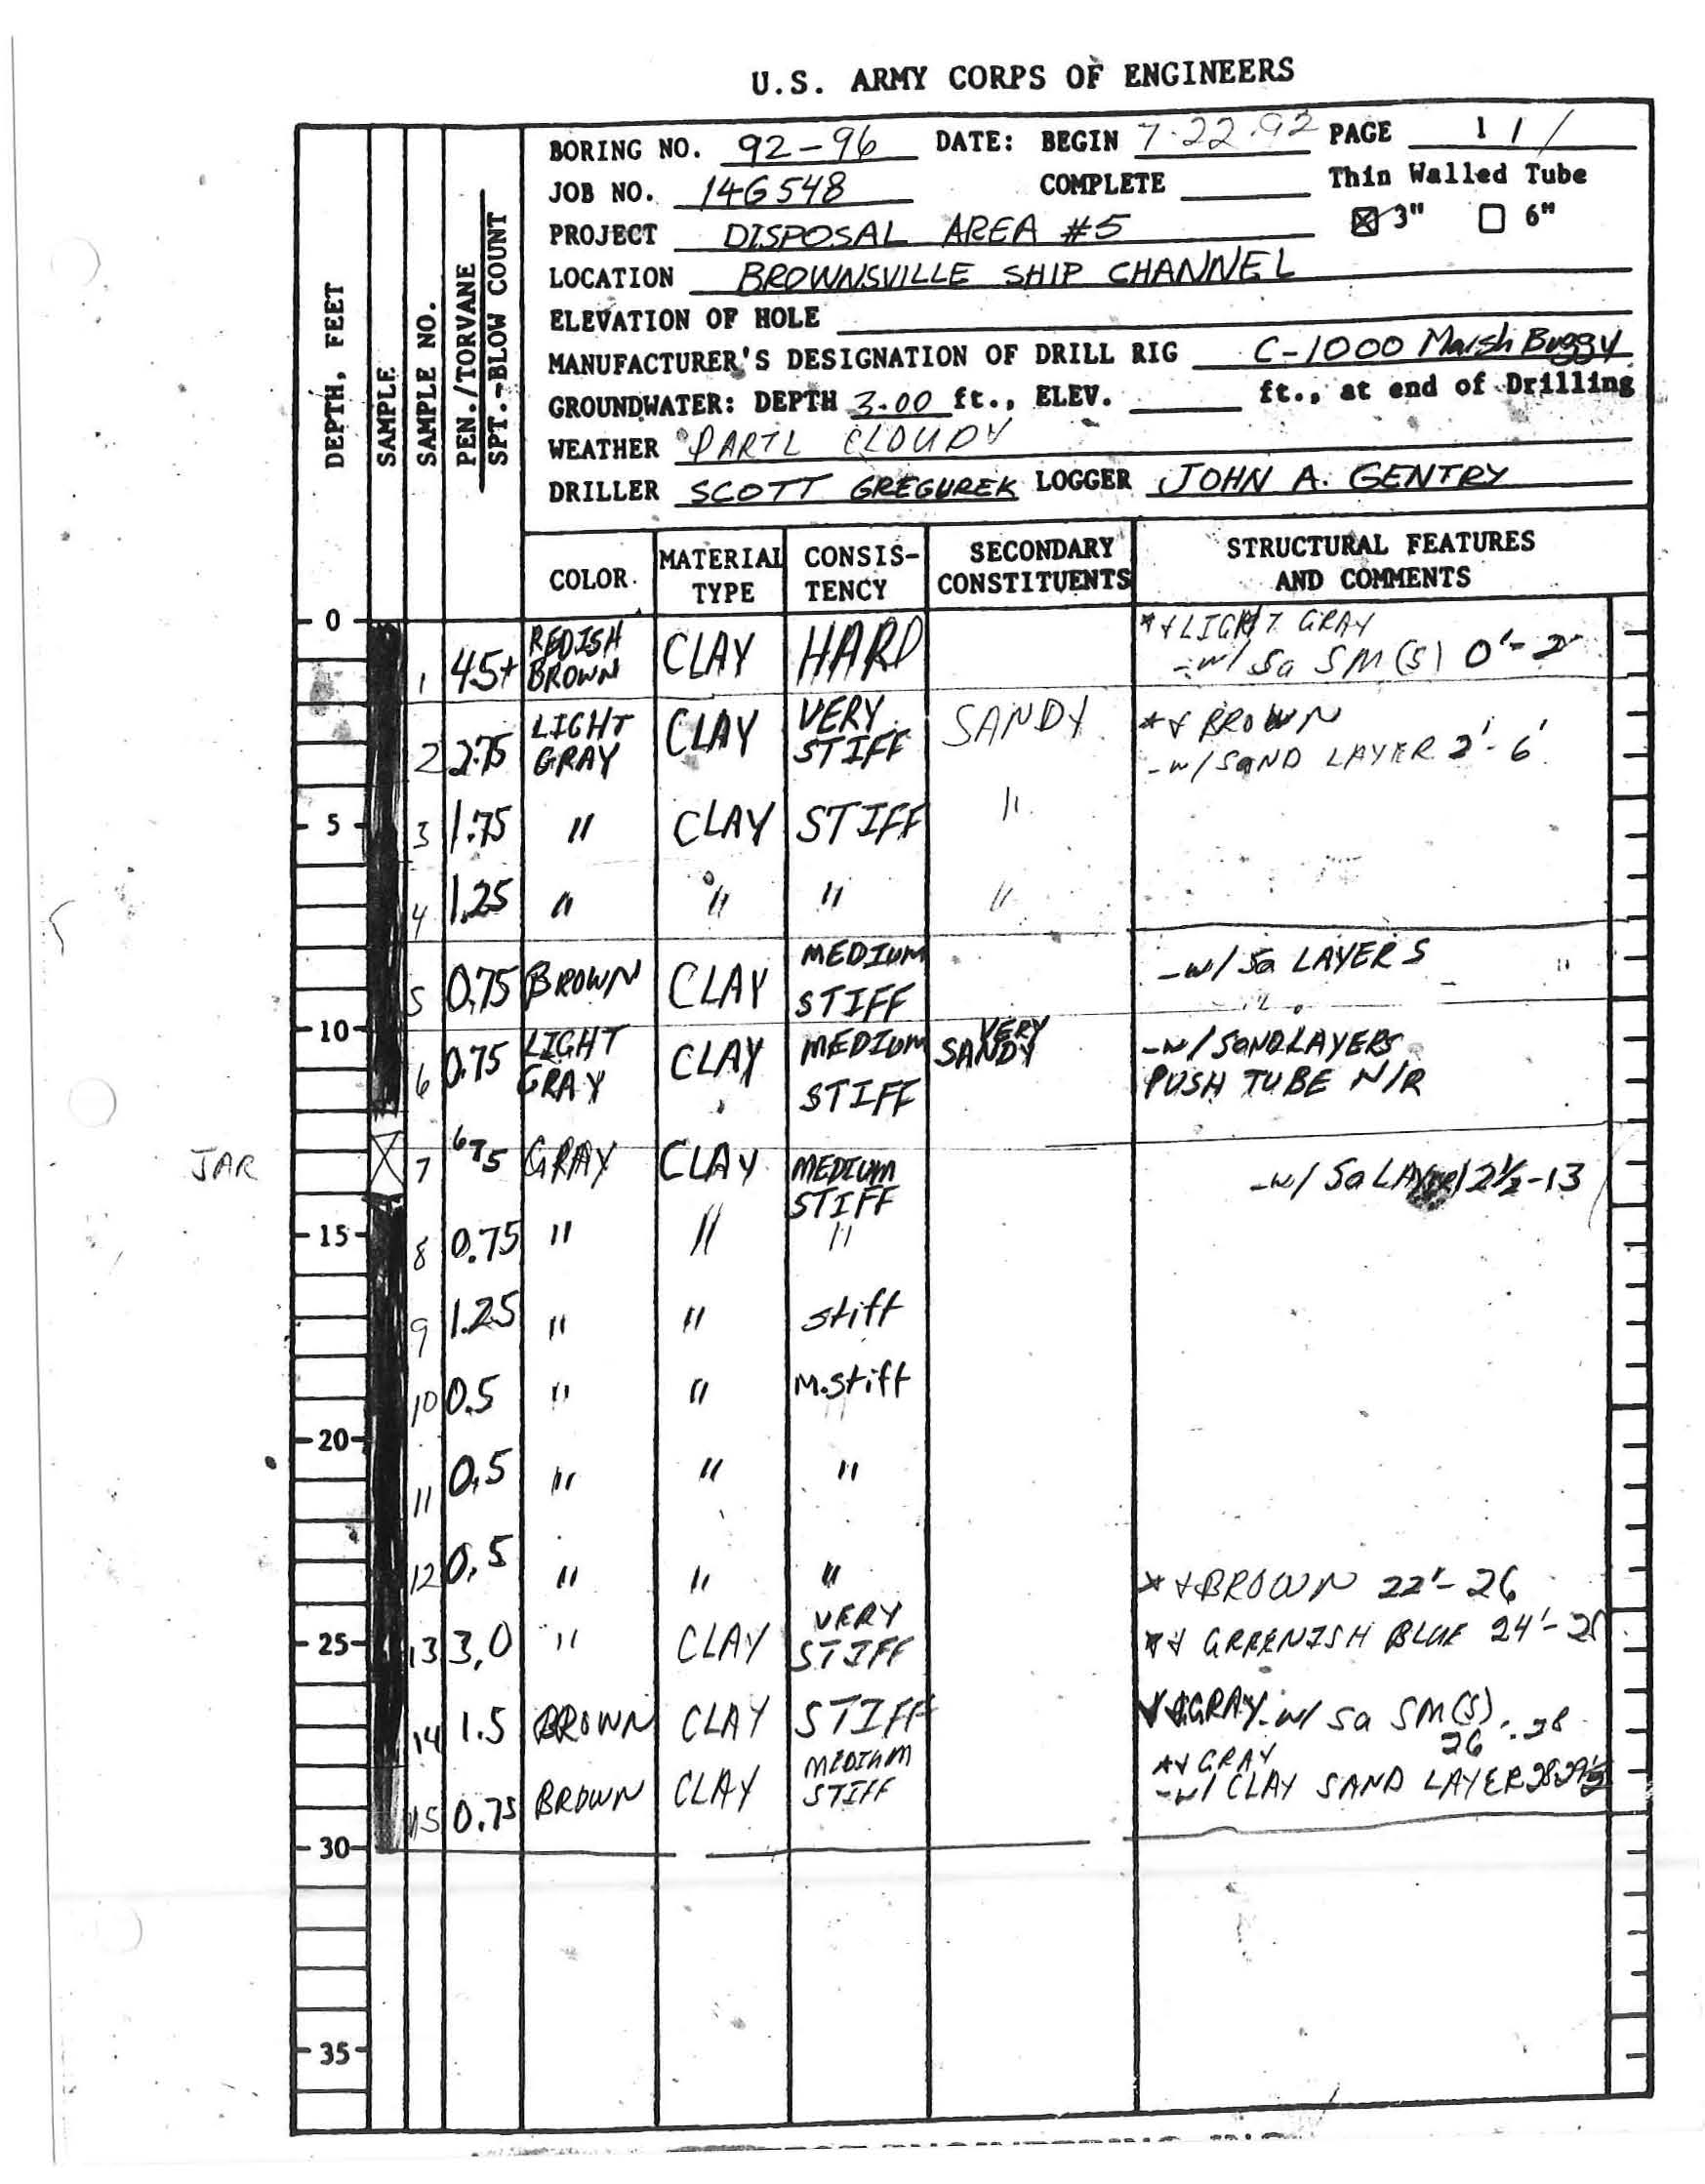 U.S. ARMY CORPS OF ENGINEERS
BORING NO. 92-96 DATE: BEGIN 7-22-92 PAGE 1 1 /
JOB NO. 14G548 COMPLETE Thin Walled Tube
PROJECT DISPOSAL AREA #5 ☒ 3" ☐ 6"
LOCATION BROWNSVILLE SHIP CHANNEL
ELEVATION OF HOLE
MANUFACTURER'S DESIGNATION OF DRILL RIG C-1000 Marsh Buggy
GROUNDWATER: DEPTH 3.00 ft., ELEV. ft., at end of Drilling
WEATHER PARTL CLOUDY
DRILLER SCOTT GREGUREK LOGGER JOHN A. GENTRY
DEPTH, FEET
SAMPLE
SAMPLE NO.
PEN./TORVANE
SPT.-BLOW COUNT
COLOR. MATERIAL TYPE CONSIS-TENCY SECONDARY CONSTITUENTS STRUCTURAL FEATURES AND COMMENTS
0
1 4.5+ REDISH BROWN CLAY HARD *+LIGHT GRAY
-w/ Sa SM(S) 0'-2'
2 2.75 LIGHT GRAY CLAY VERY STIFF SANDY *+ BROWN
-w/SAND LAYER 2'-6'
5
3 1.75 " CLAY STIFF "
4 1.25 " " " "
5 0.75 BROWN CLAY MEDIUM STIFF -w/ Sa LAYERS
10
6 0.75 LIGHT GRAY CLAY MEDIUM STIFF VERY SANDY -w/SANDLAYERS
PUSH TUBE N/R
JAR 7 CLAY GRAY MEDIUM STIFF -w/ Sa LAYER 12½-13
15
8 0.75 " " "
9 1.25 " " stiff
10 0.5 " " M.stiff
20
11 0.5 " " "
12 0.5 " " " *+BROWN 22'-26
25
13 3.0 " CLAY VERY STIFF *+ GREENISH BLUE 24'-
14 1.5 BROWN CLAY STIFF GRAY-w/ Sa SM(S) 26-28
15 0.75 BROWN CLAY MEDIUM STIFF *+ GRAY
-w/ CLAY SAND LAYER
30
35